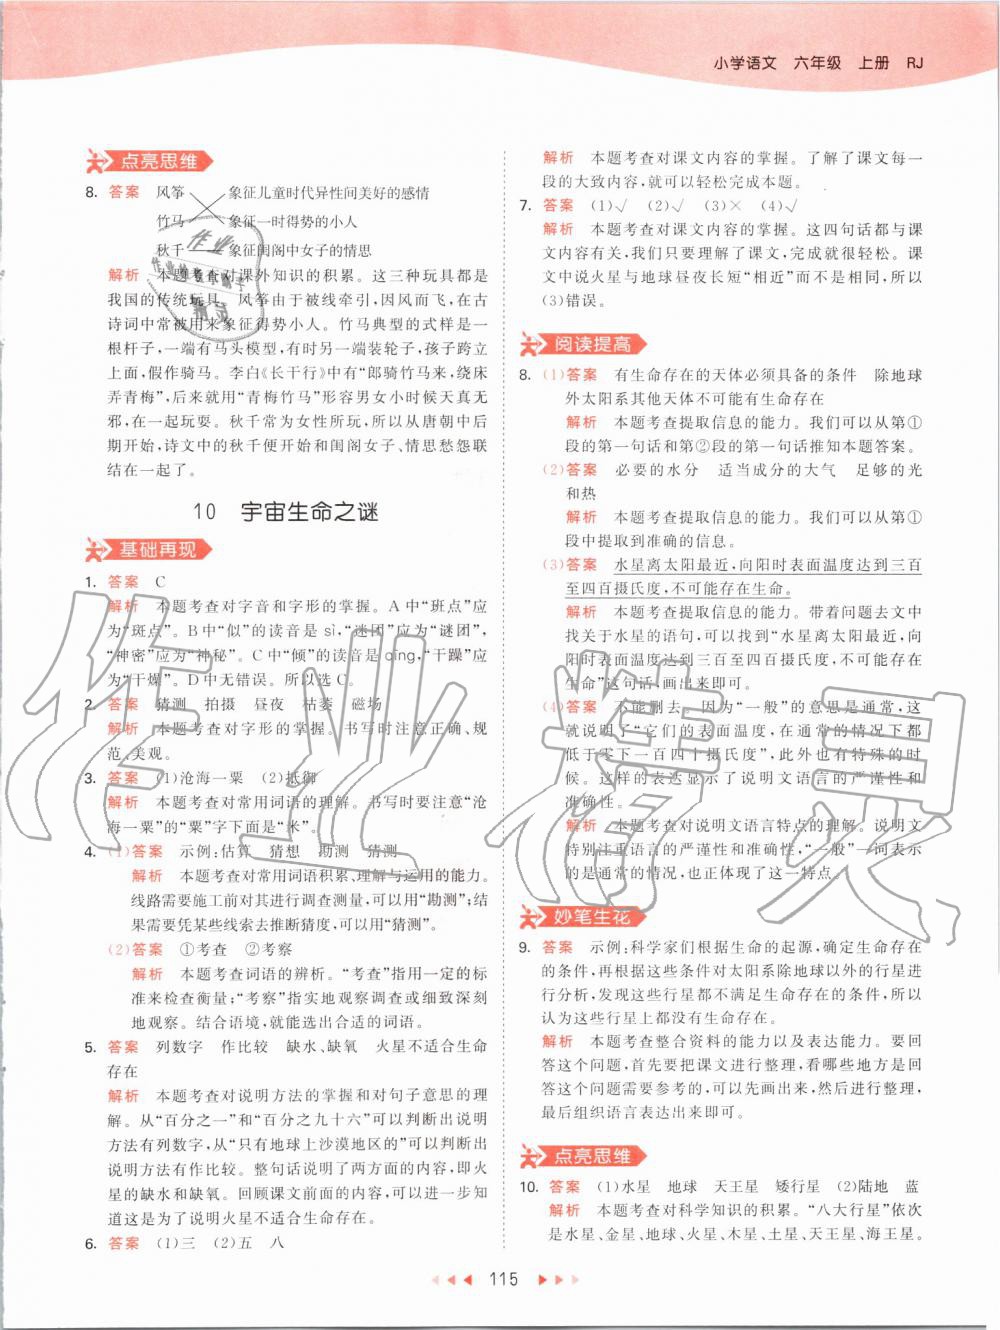 小学语文 六年级 上册 RJ
点亮思维
8. 答案 风筝 象征儿童时代异性间美好的感情
竹马 象征一时得势的小人
秋千 象征闺阁中女子的情思
解析 本题考查对课外知识的积累。这三种玩具都是
我国的传统玩具。风筝由于被线牵引,因风而飞,在古
诗词中常被用来象征得势小人。竹马典型的式样是一
根杆子,一端有马头模型,有时另一端装轮子,孩子跨立
上面,假作骑马。李白《长干行》中有“郎骑竹马来,绕床
弄青梅”,后来就用“青梅竹马”形容男女小时候天真无
邪,在一起玩耍。秋千常为女性所玩,所以从唐朝中后
期开始,诗文中的秋千便开始和闺阁女子、情思愁怨联
结在一起了。
10 宇宙生命之谜
基础再现
1. 答案 C
解析 本题考查对字音和字形的掌握。A中“班点”应
为“斑点”。B中“似”的读音是sì,“迷团”应为“谜团”,
“神密”应为“神秘”。C中“倾”的读音是qīng,“干躁”应
为“干燥”。D中无错误。所以选C。
2. 答案 猜测 拍摄 昼夜 枯萎 磁场
解析 本题考查对字形的掌握。书写时注意正确、规
范、美观。
3. 答案 (1)沧海一粟 (2)抵御
解析 本题考查对常用词语的理解。书写时要注意“沧
海一粟”的“粟”字下面是“米”。
4. (1)答案 示例:估算 猜想 勘测 猜测
解析 本题考查对常用词语积累、理解与运用的能力。
线路需要施工前对其进行调查测量,可以用“勘测”;结
果需要凭某些线索去推断猜度,可以用“猜测”。
(2)答案 ①考查 ②考察
解析 本题考查词语的辨析。“考查”指用一定的标
准来检查衡量;“考察”指实地观察调查或细致深刻
地观察。结合语境,就能选出合适的词语。
5. 答案 列数字 作比较 缺水、缺氧 火星不适合生命
存在
解析 本题考查对说明方法的掌握和对句子意思的理
解。从“百分之一”和“百分之九十六”可以判断出说明
方法有列数字,从“只有地球上沙漠地区的”可以判断出
说明方法有作比较。整句话说了两方面的内容,即火
星的缺水和缺氧。回顾课文前面的内容,可以进一步知
道这是为了说明火星不适合生命存在。
6. 答案 (1)三 (2)五 八
解析 本题考查对课文内容的掌握。了解了课文每一
段的大致内容,就可以轻松完成本题。
7. 答案 (1)√ (2)√ (3)× (4)√
解析 本题考查对课文内容的掌握。这四句话都与课
文内容有关,我们只要理解了课文,完成就很轻松。课
文中说火星与地球昼夜长短“相近”而不是相同,所以
(3)错误。
阅读提高
8. (1)答案 有生命存在的天体必须具备的条件 除地球
外太阳系其他天体不可能有生命存在
解析 本题考查提取信息的能力。我们可以从第①
段的第一句话和第②段的第一句话推知本题答案。
(2)答案 必要的水分 适当成分的大气 足够的光
和热
解析 本题考查提取信息的能力。我们可以从第①
段中提取到准确的信息。
(3)答案 水星离太阳最近,向阳时表面温度达到三百
至四百摄氏度,不可能存在生命。
解析 本题考查提取信息的能力。带着问题去文中
找关于水星的语句,可以找到“水星离太阳最近,向
阳时表面温度达到三百至四百摄氏度,不可能存在
生命”这句话,画出来即可。
(4)答案 不能删去。因为“一般”的意思是通常,这
就说明了“它们的表面温度,在通常的情况下都
低于零下一百四十摄氏度”,此外也有特殊的时
候。这样的表达显示了说明文语言的严谨性和
准确性。
解析 本题考查对说明文语言特点的理解。说明文
特别注重语言的严谨性和准确性,“一般”一词表示
的是通常的情况,也正体现了这一特点。
妙笔生花
9. 答案 示例:科学家们根据生命的起源,确定生命存在
的条件,再根据这些条件对太阳系除地球以外的行星进
行分析,发现这些行星都不满足生命存在的条件,所以
认为这些行星上都没有生命存在。
解析 本题考查整合资料的能力以及表达能力。要回
答这个问题,首先要把课文进行整理,看哪些地方是回
答这个问题需要参考的,可以先画出来,然后进行整理,
最后组织语言表达出来即可。
点亮思维
10. 答案 (1)水星 地球 天王星 矮行星 (2)陆地 蓝
解析 本题考查对科学知识的积累。“八大行星”依次
是水星、金星、地球、火星、木星、土星、天王星、海王星。
115
作业精灵